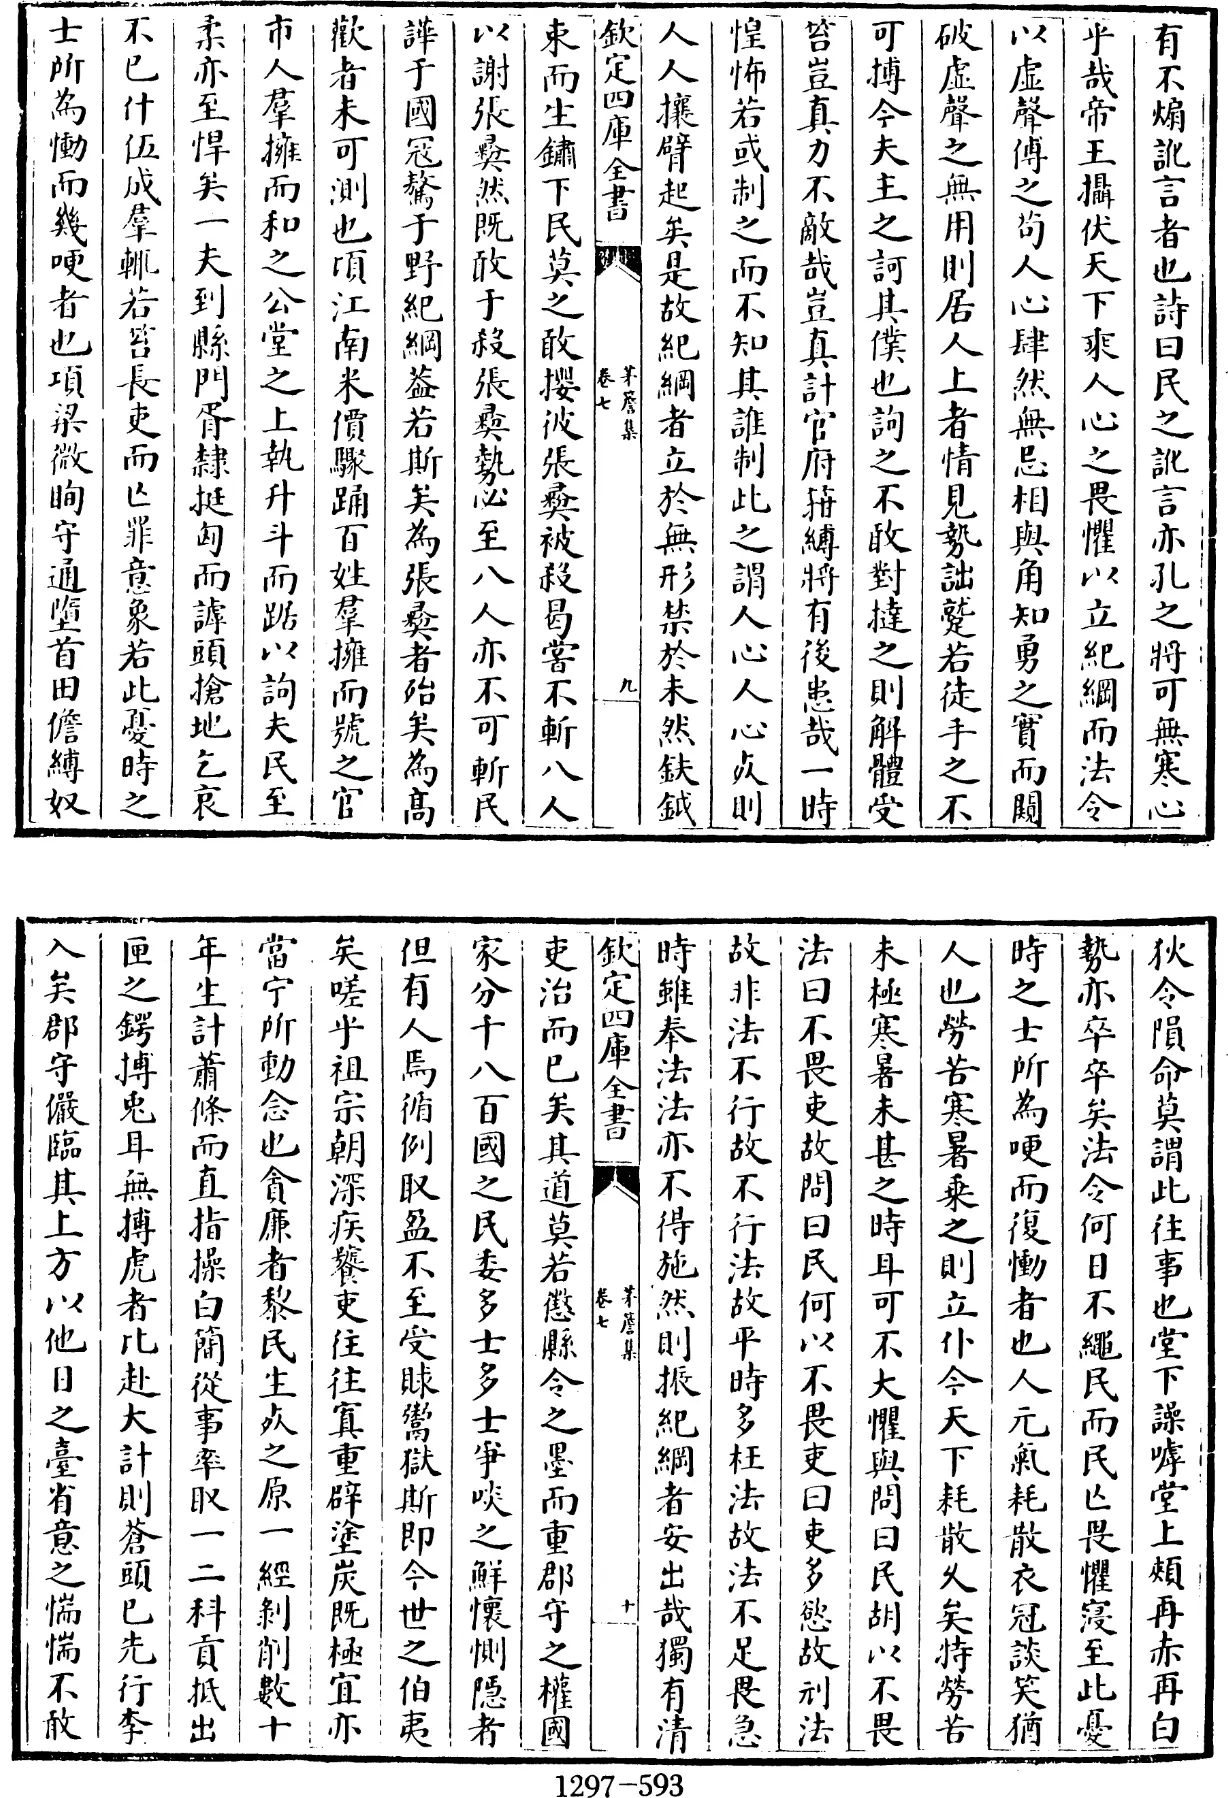 有不煽訛言者也詩曰民之訛言亦孔之將可無寒心
乎哉帝王攝伏天下乘人心之畏懼以立紀綱而法令
以虛聲傅之茍人心肆然無忌相與角知勇之實而闚
破虛聲之無用則居人上者情見勢詘蹵若徒手之不
可搏今夫主之訶其僕也詢之不敢對撻之則解體受
笞豈真力不敵哉豈真計官府搒縛將有後患哉一時
惶怖若或制之而不知其誰制此之謂人心人心㸃則
人人攘臂起矣是故紀綱者立於無形禁於未然鈇鉞
欽定四庫全書
茅簷集
卷七
九
束而生鏽下民莫之敢攖彼張彝被殺曷嘗不斬八人
以謝張彝然既敢于殺張彝勢必至八人亦不可斬民
譁于國冦驁于野紀綱葢若斯矣為張彝者殆矣為高
歡者未可測也頃江南米價驟踊百姓羣擁而號之官
市人羣擁而和之公堂之上執升斗而踞以詢夫民至
柔亦至悍矣一夫到縣門胥隸挺匈而謼頭搶地乞哀
不已什伍成羣輒若笞長吏而亡罪意象若此憂時之
士所為慟而幾哽者也項梁微眴守通墮首田儋縛奴
狄令隕命莫謂此往事也堂下譟嘑堂上頰再赤再白
勢亦卒卒矣法令何日不繩民而民亡畏懼寖至此憂
時之士所為哽而復慟者也人元氣耗散衣冠談笑猶
人也勞苦寒暑乗之則立仆今天下耗散乆矣特勞苦
未極寒暑未甚之時耳可不大懼與問曰民胡以不畏
法曰不畏吏故問曰民何以不畏吏曰吏多慾故刓法
故非法不行故不行法故平時多枉法故法不足畏急
時雖奉法法亦不得施然則振紀綱者安出哉獨有清
欽定四庫全書
茅簷集
卷七
十
吏治而已矣其道莫若懲縣令之墨而重郡守之權國
家分千八百國之民委多士多士爭啖之鮮懷惻隠者
但有人焉循例取盈不至受賕鬻獄斯即今世之伯夷
矣嗟乎祖宗朝深疾饕吏往往寘重辟塗炭既極宜亦
當宁所動念也貪廉者黎民生㸃之原一經剝削數十
年生計蕭條而直指操白簡從事率取一二科貢抵出
匣之鍔搏兎耳無搏虎者比赴大計則蒼頭已先行李
入矣郡守儼臨其上方以他日之臺省意之惴惴不敢
1297-593